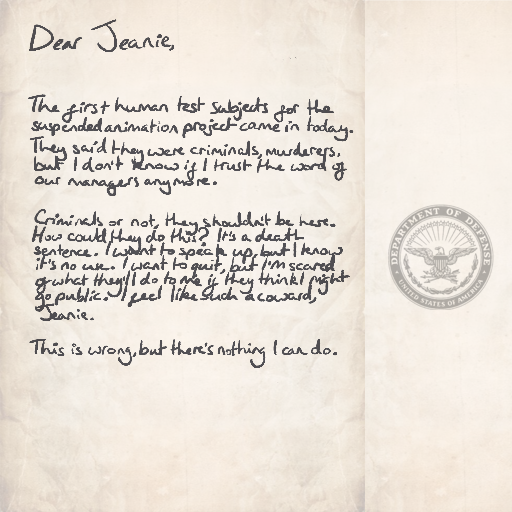 Dear Jeanie,
The first human test subjects for the
suspended animation project came in today.
They said they were criminals, murderers,
but I don't know if I trust the word of
our managers anymore.
Criminals or not, they shouldn't be here.
How could they do this? It's a death
sentence. I want to speak up, but I know
it's no use. I want to quit, but I'm scared
of what they'll do to me if they think I might
go public. I feel like such a coward,
Jeanie.
This is wrong, but there's nothing I can do.
DEPARTMENT OF DEFENSE
UNITED STATES OF AMERICA